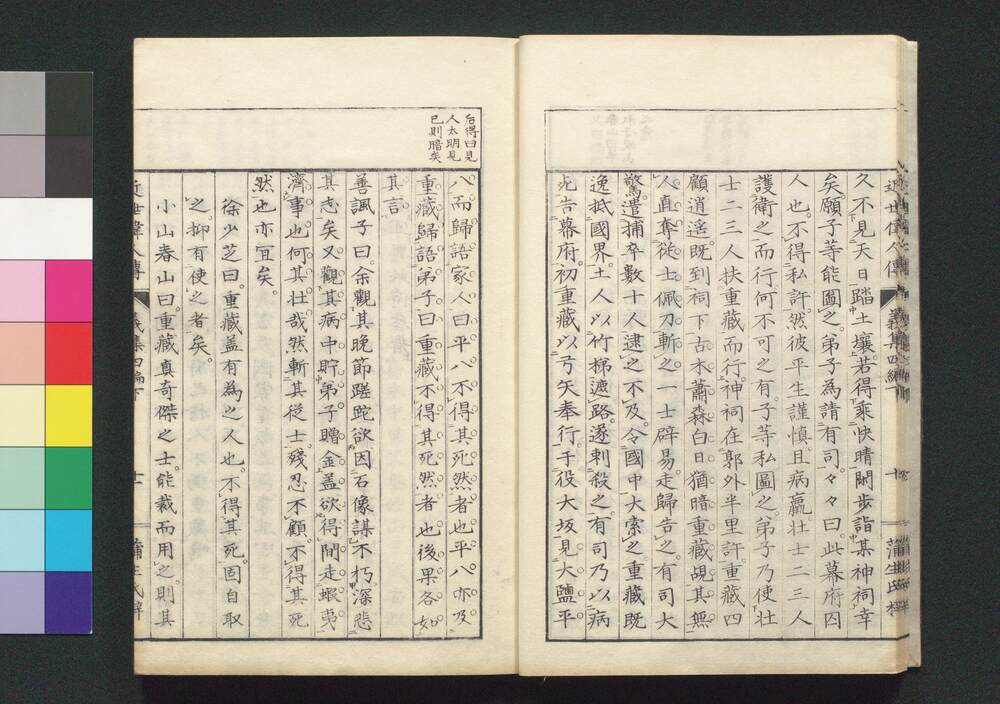 久不見天日踏土壤若得乘快晴閑步詣某神祠幸
矣願子等能圖之弟子為請有司々々曰此幕府囚
人也不得私許然彼平生謹慎且病羸壯士二三人
護衛之而行何不可之有子等私圖之弟子乃使壯
士二三人扶重藏而行神祠在郭外半里許重藏四
顧逍遥既到祠下古木蕭森白日猶暗重藏覘其無
人直奪從士佩刀斬之一士辟易走歸告之有司大
驚遣捕卒數十人逮之不及令國中大索之重藏既
逸抵國界土人以竹梯遮路遂刺殺之有司乃以病
死告幕府初重藏以弓矢奉行于役大坂見大鹽平
八而歸語家人曰平八不得其死然者也平八亦及
重藏歸語弟子曰重藏不得其死然者也後果各如
其言
善諷子曰余觀其晚節蹉跎欲因石像謀不朽深悲
其志矣又觀其病中貯弟子贈金蓋欲得間走蝦夷
濟事也何其壯哉然斬其從士殘忍不顧不得其死
然也亦宜矣
徐少芝曰重藏蓋有為之人也不得其死固自取
之抑有使之者矣
小山春山曰重藏真奇傑之士能裁而用之則其
台得曰見
人太明見
已則暗矣
近世偉人傳
義集四編下
十一
蒲生氏梓